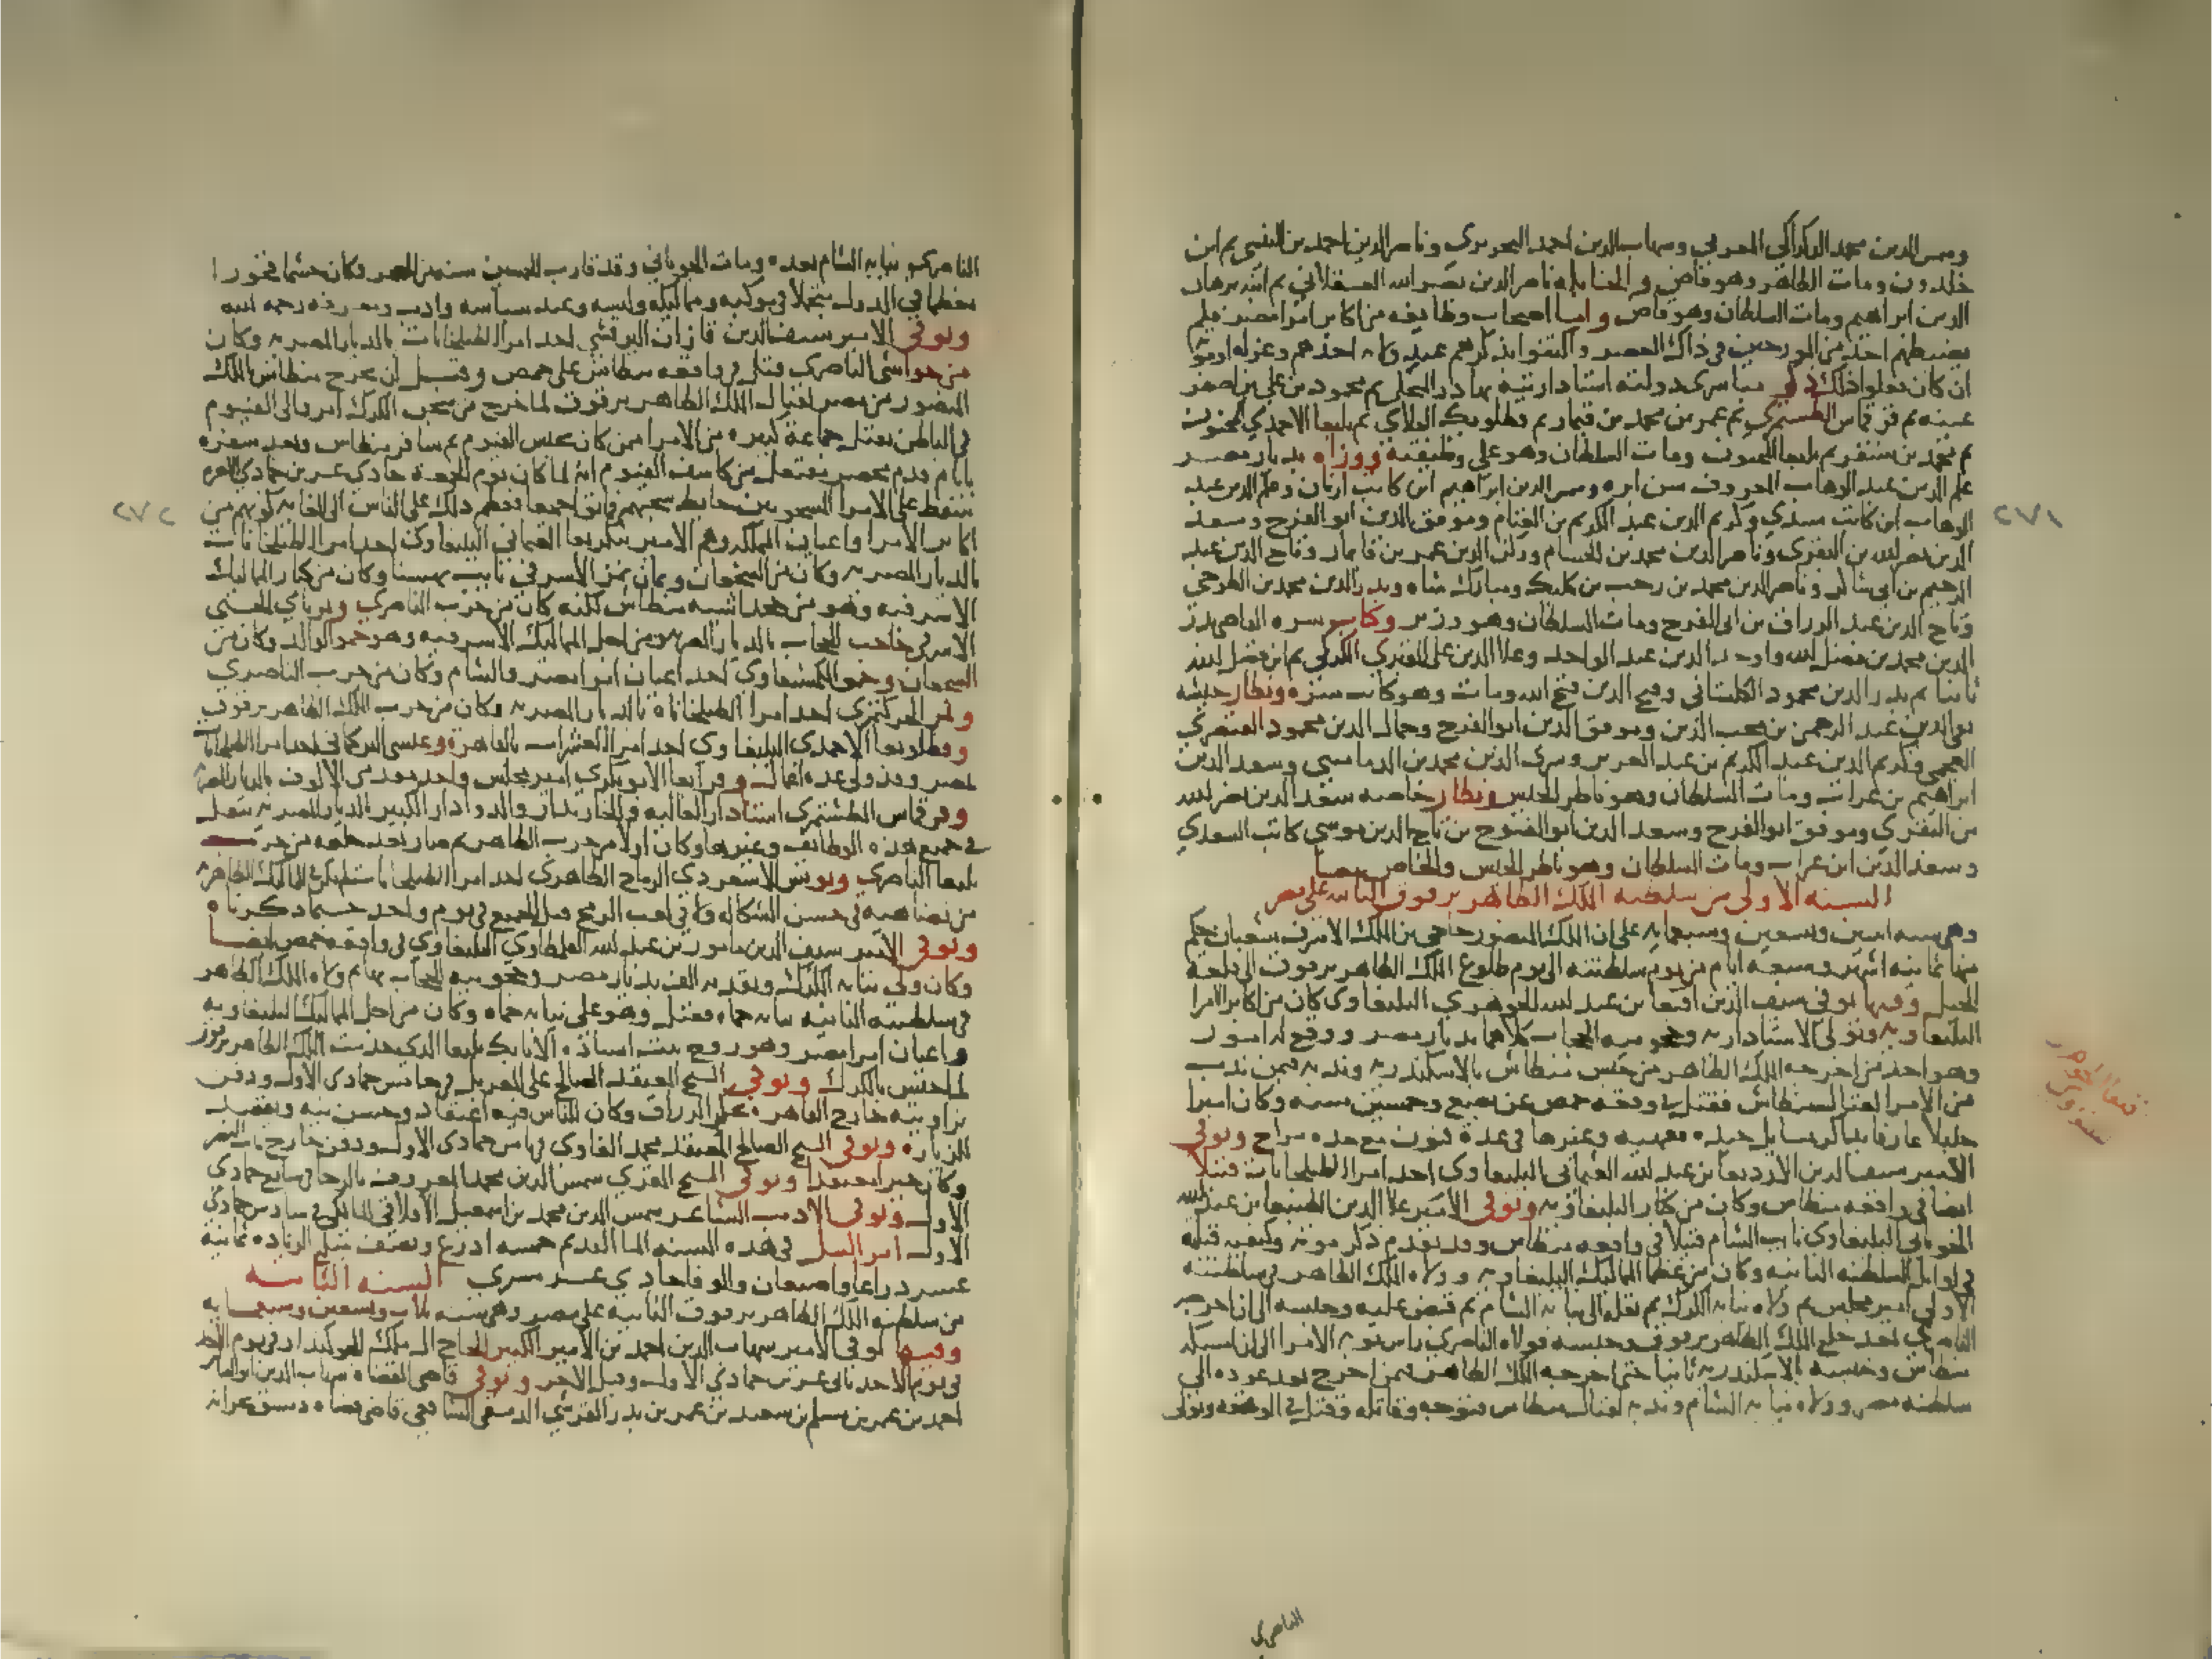 وشمس الدين محمد الركراكي المغربي وشهاب الدين احمد النحريري وناصر الدين احمد بن التنسي ثم ابن
خلدون ومات الظاهر وهو قاض والحنابلة ناصر الدين نصر الله العسقلاني ثم ابنه برهان
الدين ابراهيم ومات السلطان وهو قاض واما اصحاب وظايفه من اكابر امرا مصر فلم
يضبطهم احد من المورخين في ذلك العصر واكتفوا بذكرهم عند ولاية احدهم وعزله او موته
ان كان فعلوا ذلك ذكر مباشري دولته استاداريته بهادر المنجكي ثم محمود بن علي بن اصفر
عينه ثم قرقماس الطشتمري ثم عمر بن محمد بن قيماز ثم قطلوبك العلاي ثم يلبغا الاحمدي المجنون
ثم محمد بن سنقر ثم يلبغا المجنون ومات السلطان وهو على وظيفته ووزراه بديار مصر
علم الدين عبد الوهاب المعروف سن ابره وشمس الدين ابراهيم ابن كاتب ارنان وعلم الدين عبد
الوهاب ابن كاتب سيدي وكريم الدين عبد الكريم بن الغنام وموفق الدين ابو الفرج وسعد
الدين نصر الله بن البقري وناصر الدين محمد بن الحسام وركن الدين عمر بن قايماز وتاج الدين عبد
الرحيم بن ابي شاكر وناصر الدين محمد بن رجب بن كلبك ومبارك شاه وبدر الدين محمد بن الطوخي
وتاج الدين عبد الرزاق بن ابي الفرج ومات السلطان وهو وزير وكتاب سره القاضي بدر
الدين محمد بن فضل الله واوحد الدين عبد الواحد وعلا الدين علي المقيري الكركي ثم ابن فضل الله
ثانيا ثم بدر الدين محمود الكلستاني وفتح الدين فتح الله ومات وهو كاتب سره ونظار جيشه
تقي الدين عبد الرحمن بن محب الدين وموفق الدين ابو الفرج وجمال الدين محمود القيصري
العجمي وكريم الدين عبد الكريم بن عبد العزيز وشرف الدين محمد بن الدماميني وسعد الدين
ابراهيم بن غراب ومات السلطان وهو ناظر الجيش ونظار خاصه سعد الدين نصر الله
بن البقري وموفق ابو الفرج وسعد الدين ابو الفتوح بن تاج الدين موسى كاتب السعدي
وسعد الدين ابن غراب ومات السلطان وهو ناظر الجيش والخاص ايضا
السنة الاولى من سلطنة الملك الظاهر برقوق الثانية على مصر
وهي سنة اثنين وتسعين وسبعماية على ان الملك المنصور حاجي بن الملك الاشرف شعبان حكم
منها ثمانية اشهر وسبعة ايام من يوم سلطنته الى يوم طلوع الملك الظاهر برقوق الى قلعة
الجبل وفيها توفي سيف الدين اقبغا بن عبد الله الجوهري اليلبغاوي كان من اكابر الامرا
اليلبغاوية وتولى الاستادارية وحجوبية الحجاب كلاهما بديار مصر ووقع له امور
وهو احد من اخرجه الملك الظاهر من حبس منطاش بالاسكندرية وندبه فيمن ندب
من الامرا لقتال منطاش فقتل في وقعة حمص عن بضع وخمسين سنة وكان اميرا
جليلا عارفا بمسايل جيده فقهيه وغيرها في عدة فنون مع حده مزاج وتوفي
الامير سيف الدين اردبغا بن عبد الله العثماني اليلبغاوي احد امرا الطبلخانات قتيلا
ايضا في واقعة منطاش وكان من كبار اليلبغاوية وتوفي الامير علا الدين الطنبغا بن عبد الله
الجوباني اليلبغاوي نايب الشام قتيلا في واقعة منطاش وقد تقدم ذكر موته وكيفية قتله
في اوايل السلطنة الثانية وكان من عظما المماليك اليلبغاوية وولاه الملك الظاهر في سلطنته
الاولى امير مجلس ثم ولاه نيابة الكرك ثم نقله الى نيابة الشام ثم قبض عليه وحبسه الى ان اخرجه
الناصري بعد خلع الملك الظاهر برقوق وحبسه فولاه الناصري راس نوبة الامرا الى ان امسكه
منطاش وحبسه بالاسكندرية ثانيا حتى اخرجه الملك الظاهر فيمن اخرج بعد عوده الى
سلطنة مصر وولاه نيابة الشام وندبه لقتال منطاش فتوجه وقاتله وقتل في الوقعة وتولى
الناصري
٢٧١
الناصري نيابة الشام بعده ومات الجوباني وقد قارب الخمسين سنة من العمر وكان حشما فخورا
معظما في الدول متجملا في موكبه ومماليكه ولبسه وعنده سياسة وادب ومعرفة رحمه الله
وتوفي الامير سيف الدين قازان البرقشي احد امرا الطبلخانات بالديار المصرية وكان
من حواشي الناصري قتل في واقعة منطاش على حمص وقبل ان يخرج منطاش بالملك
المنصور من مصر لقتال الملك الظاهر برقوق لما خرج من سجن الكرك امر والي الفيوم
في الباطن بقتل جماعة كبيرة من الامرا ممن كان بحبس الفيوم ثم سافر منطاش وبعد سفره
بايام قدم محضر مفتعل من كاشف الفيوم انه لما كان يوم الجمعة حادي عشرين جمادي الاخر
سقط على الامرا المسجونين حايط سجنهم فماتوا جميعا فعظم ذلك على الناس الى الغاية كونهم من
اكابر الامرا واعيان المملكة وهم الامير تنكزبغا العثماني اليلبغاوي احد امرا الطبلخانات
بالديار المصرية وكان من الشجعان وتمان تمر الاشرفي نايب بهسنا وكان من كبار المماليك
الاشرفية وهو من خشداشية منطاش لكنه كان من حزب الناصري وتمرباي الحسني
الاشرفي حاجب الحجاب بالديار المصرية ومن اجل المماليك الاشرفية وهو حمو الوالد وكان من
الشجعان وجمق الكمشبغاوي احد اعيان امرا مصر والشام وكان من حزب الناصري
وتمر الجركتمري احد امرا الطبلخاناه بالديار المصرية وكان من حزب الملك الظاهر برقوق
وقطلوبغا الاحمدي اليلبغاوي احد امرا العشرات بالقاهرة وعيسى التركماني احد امرا الطبلخانات
بمصر وقد ولي عدة اعمال وقرابغا الابوبكري امير مجلس واحد مقدمي الالوف بالديار المصرية
وقرقماس الطشتمري استادار العالية والخازندار والدوادار الكبير بالديار المصرية تنقل
في جميع هذه الوظايف وغيرها وكان اولا من حزب الظاهر ثم صار بعد خلعه من حزب
يلبغا الناصري ويونس الاسعردي الرماح الظاهري احد امرا الطبلخانات
من يضاهيه في حسن الشكالة ولا في لعب الرمح قتل الجميع في يوم واحد حسبما ذكرناه
وتوفي الامير سيف الدين مامور بن عبد الله القلمطاوي اليلبغاوي في واقعة حمص ايضا
وكان ولي نيابة الكرك وتقدمة الف بديار مصر وحجوبية الحجاب بها ثم ولاه الملك الظاهر
في سلطنته الثانية نيابة حماه فقتل وهو على نيابة حماه وكان من اجل المماليك اليلبغاوية
واعيان امرا مصر وهو زوج بنت استاذه الاتابك يلبغا الذي خدمت الملك الظاهر برقوق
لما حبس بالكرك وتوفي الشيخ المعتقد الصالح علي المغربل في خامس جمادي الاول ودفن
بزاويته خارج القاهرة بحكر الزراق وكان للناس فيه اعتقاد وحسن نية ويقصد
للزيارة وتوفي الشيخ الصالح المعتقد محمد الفاوي في ثامن جمادي الاول ودفن خارج باب النصر
وكان خيرا معتقدا وتوفي الشيخ المقري شمس الدين محمد المعروف بالرفا في سابع جمادي
الاول وتوفي الاديب الشاعر شمس الدين محمد بن اسمعيل الافلاقي المالكي في سادس جمادي
الاول امر النيل في هذه السنة الما القديم خمسة اذرع ونصف مبلغ الزيادة ثمانية
عشر ذراعا واصبعان والوفا حادي عشر مسري السنة الثانية
من سلطنة الملك الظاهر برقوق الثانية على مصر وهي سنة ثلاث وتسعين وسبعماية
وفيها توفي الامير شهاب الدين احمد بن الامير الكبير الحاج ال ملك الجوكندار في يوم
يوم الاحد ثاني عشرين جمادي الاول وقيل الاخر وتوفي قاضي القضاة شهاب الدين
احمد بن عمر بن مسلم بن سعيد بن عمر بن بدر القرشي الدمشقي الشافعي قاضي قضاة دمشق
٢٧٢